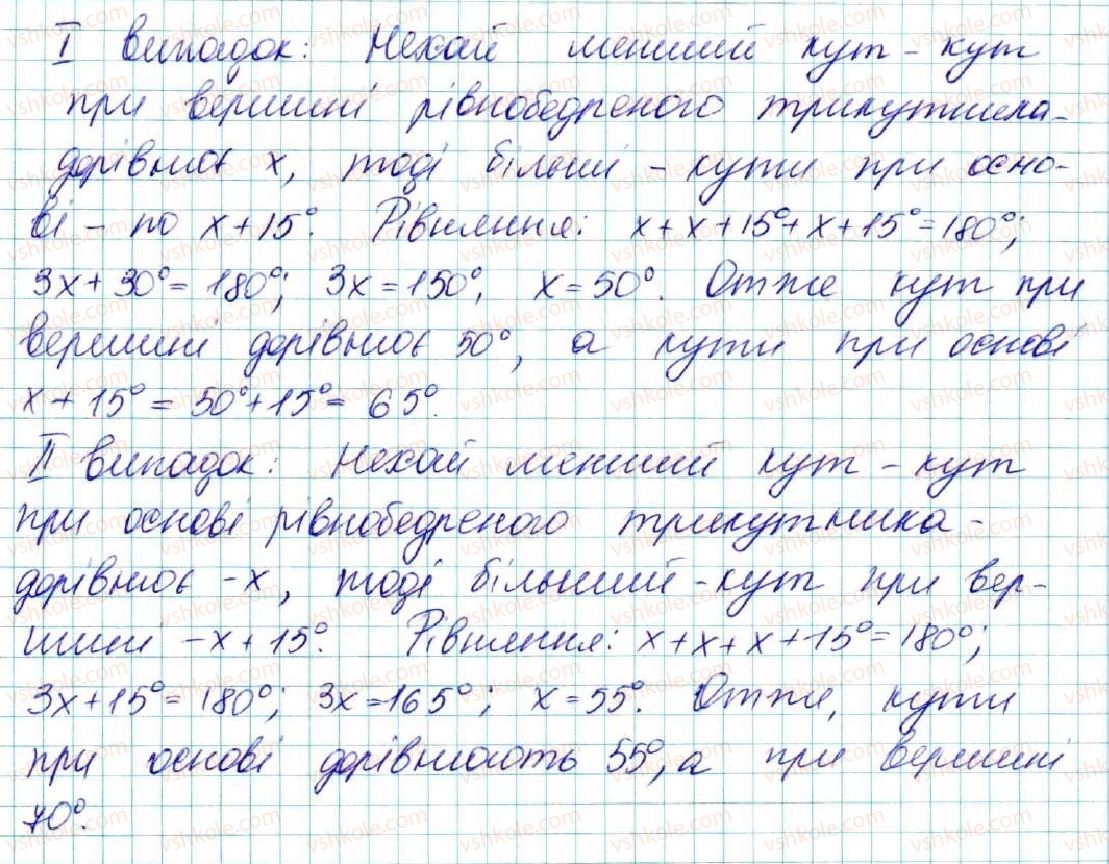 I випадок: Нехай менший кут – кут
при вершині рівнобедреного трикутника –
дорівнює x, тоді більші – кути при осно-
ві – по x + 15°. Рівняння: x + x + 15° + x + 15° = 180°;
3x + 30° = 180°; 3x = 150°, x = 50°. Отже кут при
вершині дорівнює 50°, а кути при основі
x + 15° = 50° + 15° = 65°.
II випадок: Нехай менший кут – кут
при основі рівнобедреного трикутника –
дорівнює – x, тоді більший – кут при вер-
шині – x + 15°. Рівняння: x + x + x + 15° = 180°;
3x + 15° = 180°; 3x = 165°; x = 55°. Отже, кути
при основі дорівнюють 55°, а при вершині
70°.